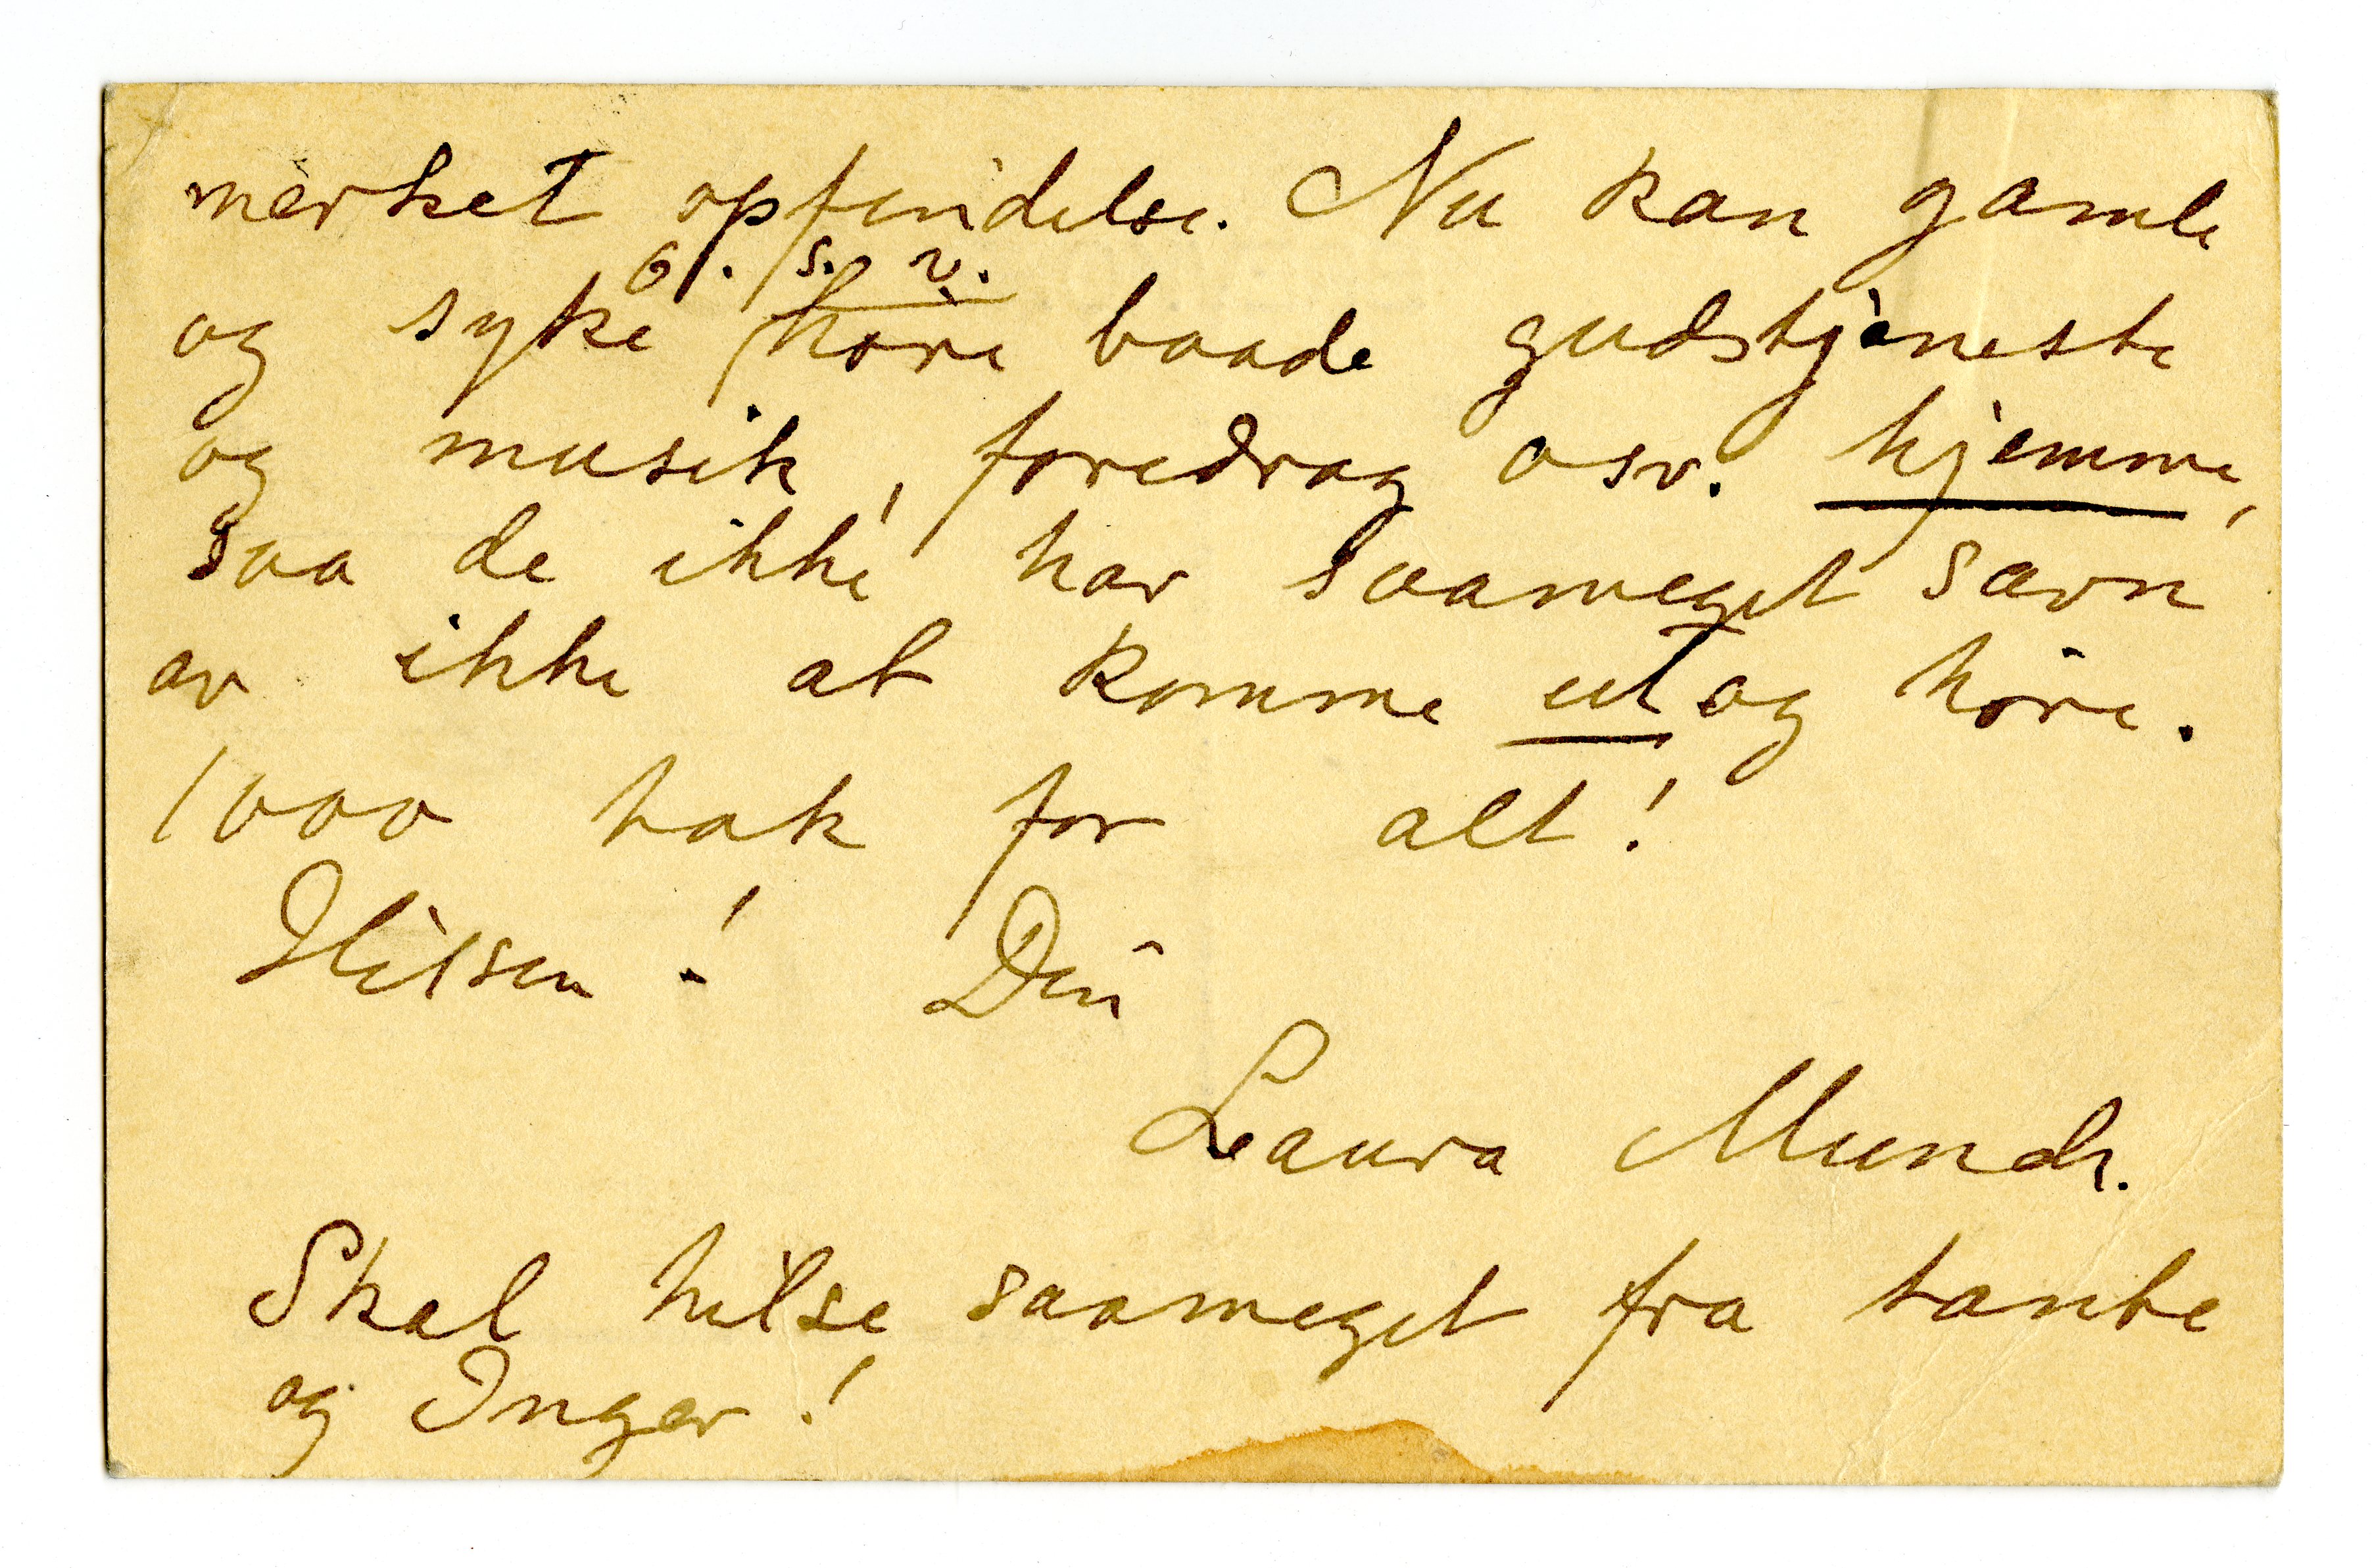 merket opfindelse. Nu kan gamle
o. s. v.
og syke høre baade gudstjeneste
og musik, foredrag osv. hjemme,
saa de ikke har saameget savn
av ikke at komme ut og høre.
1000 tak for alt!
Hilsen! Din
Laura Munch.
Skal hilse saameget fra tante
og Inger!